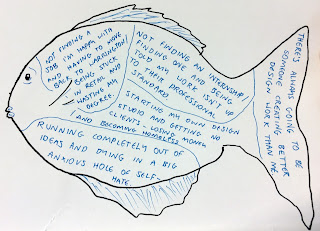 NOT FINDING A
JOB I'M HAPPY WITH
AND HAVING TO MOVE
BACK TO WARRINGTON,
BEING STUCK
IN RETAIL AND
WASTING MY
DEGREE.
NOT FINDING AN INTERNSHIP/
FINDING ONE AND BEING
TOLD MY WORK ISN'T UP
TO THEIR PROFESSIONAL
STANDARD
STARTING MY OWN DESIGN
STUDIO AND GETTING NO
CLIENTS, LOSING MONEY
AND BECOMING HOMELESS
RUNNING COMPLETELY OUT OF
IDEAS AND DYING IN A BIG
ANXIOUS HOLE OF SELF-
HATE.
THERE'S ALWAYS GOING TO BE
SOMEONE CREATING BETTER
DESIGN WORK THAN ME